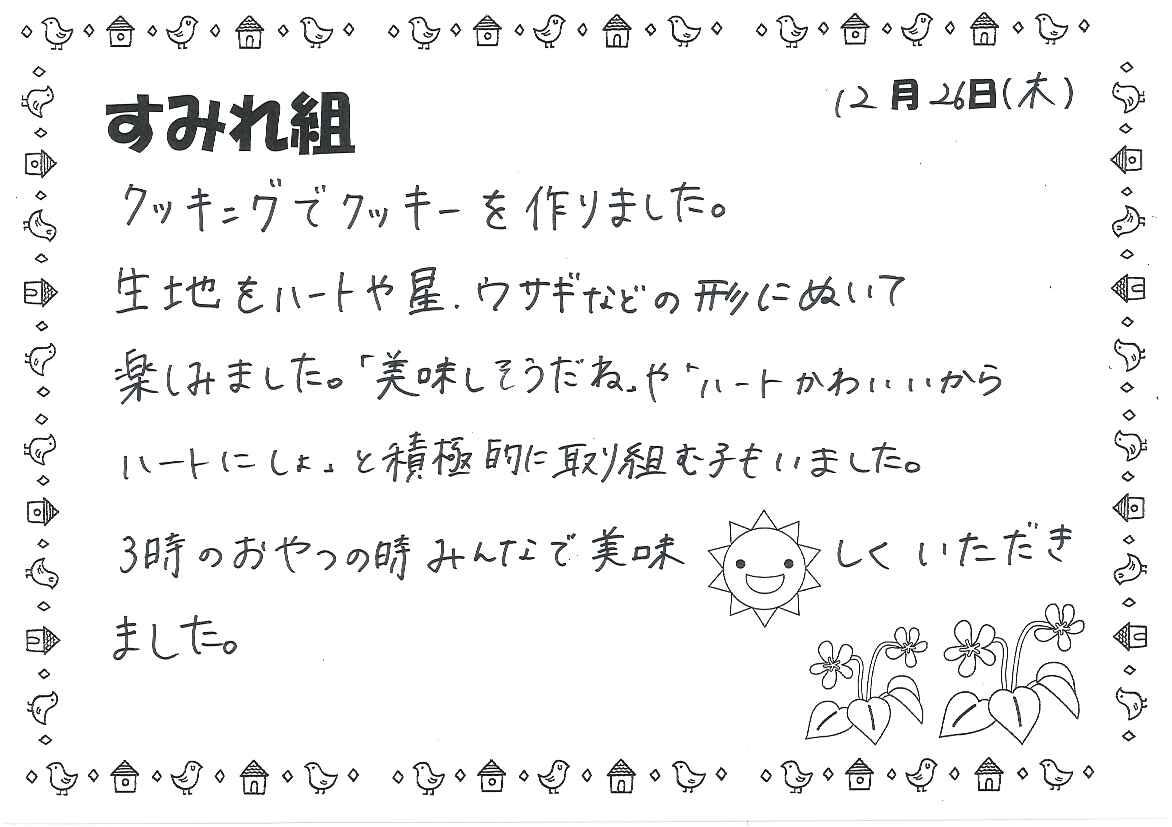 すみれ組
12月26日(木)
クッキングでクッキーを作りました。
生地をハートや星、ウサギなどの形にぬいて
楽しみました。「美味しそうだね」や「ハートかわいいから
ハートにしょ」と積極的に取り組む子もいました。
3時のおやつの時みんなで美味しくいただき
ました。